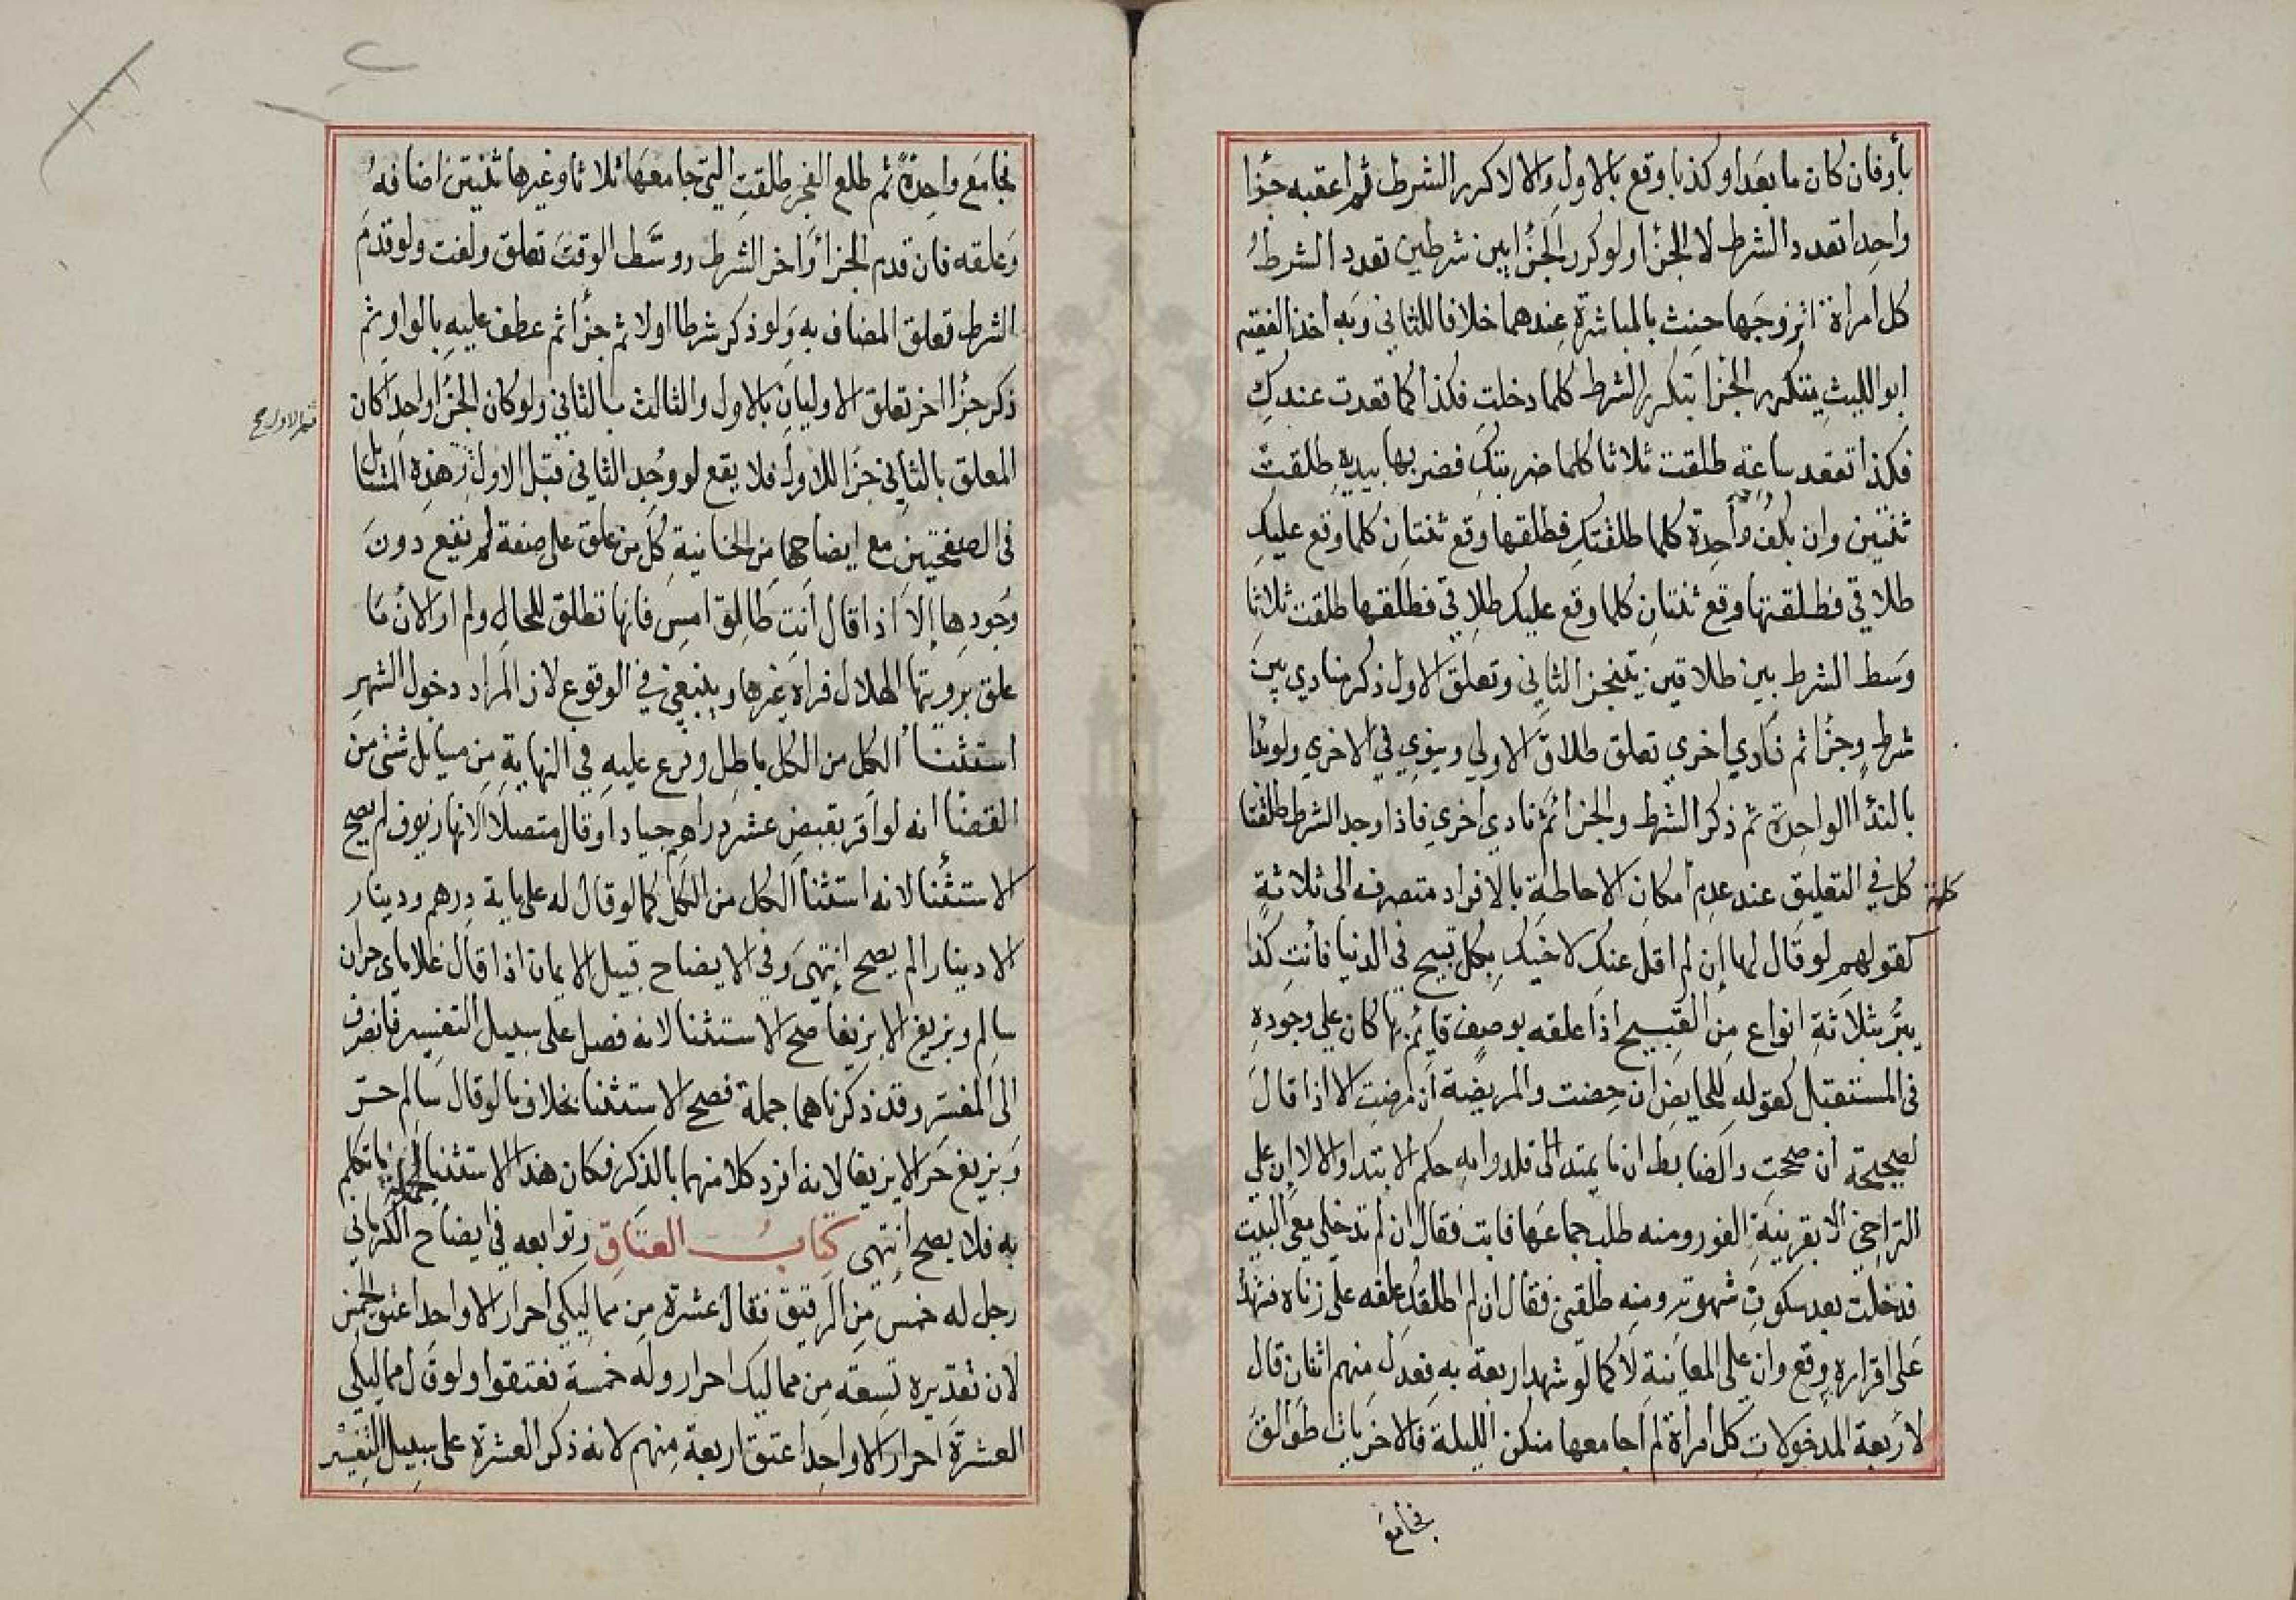 بأو فان كان ما بعد او كذبا وقع بالاول والا لا كرر الشرط ثم اعقبه جزأ
واحدا تعدد الشرط لا الجزأ ولو كرر الجزأ بين شرطين تعدد الشرط
كل امراة اتزوجها حنث بالمباشرة عندهما خلافا للثاني وبه اخذ الفقيه
ابو الليث يتكرر الجزأ بتكرر الشرط كلما دخلت فكذا كلما قعدت عندك
فكذا فقعد ساعة طلقت ثلاثا كلما ضربتك فضربها بيديه طلقت
ثنتين وان بكف واحدة كلما طلقتك فطلقها وقع ثنتان كلما وقع عليك
طلاقي فطلقتها وقع ثنتان كلما وقع عليك طلاقي فطلقها طلقت ثلاثا
وسط الشرط بين طلاقين يتنجز الثاني وتعلق الاول ذكر منادي بين
شرط وجزأ ثم نادي اخري تعلق طلاق الاولي وينوي في الاخري ولو بدأ
بالندأ الواحدة ثم ذكر الشرط والجزأ ثم نادي اخري فاذا وجد الشرط طلقتا
كلمة
كل في التعليق عند عدم امكان الاحاطة بالافراد متصرفه الى ثلاثة
كقولهم لو قال لها إن لم اقل عنك لاخيك بكل قبيح في الدنيا فأنت كذا
يبر بثلاثة انواع من القبيح اذا علقه بوصف قائم بها كان علي وجوده
في المستقبل كقوله للحايض ان حضت والمريضة ان مرضت الا اذا قال
لصحيحة ان صححت والضابط ان ما يمتد فلدوامه حكم الابتدا والا لا إن علي
التراخي الا بقرينة الفور ومنه طلب جماعها فابت فقال ان لم تدخلي معي البيت
فدخلت بعد سكون شهوته ومنه طلقني فقال ان لم اطلقك علقه على زناه فشهدا
على اقراره وقع وان على المعاينة لا كما لو شهد اربعة به فعدل منهم اثنان قال
لاربعة المدخولات كل امرأة لم اجامعها منكن الليلة فالاخريات طوالق
فجامع
فجامع واحدة ثم طلع الفجر طلقت التي جامعها ثلاثا وغيرها ثنتين اضافه
وعلقه فان قدم الجزأ واخر الشرط ووسط الوقت تعلق ولغت ولو قدم
الشرط تعلق المضاف به ولو ذكر شرطا اولا ثم جزأ ثم عطف عليه بالواو ثم
ذكر جزأ اخر تعلق الاوليان بالاول والثالث بالثاني ولو كان الجزأ واحدا كان
المعلق بالثاني جزأ للاول فلا يقع لو وجد الثاني قبل الاول وهذه المسائل
في الصفحتين مع ايضاحها من الخانية كل من علق على صفة لم تقع دون
وجودها إلا اذا قال أنت طالق امس فانها تطلق للحال ولم ار الان ما
علق برويتها الهلال فراه غيرها وينبغي في الوقوع لان المراد دخول الشهر
استثنأ الكل من الكل باطل وفرع عليه في النهاية من مسايل شتى من
القضا انه لو اقر بقبض عشر دراهم جياد او قال متصلا الا انها زيوف لم يصح
الاستثنا لانه استثنا الكل من الكل كما لو قال له علي ماية درهم ودينار
الا دينارا لم يصح انتهى وفي الايضاح قبيل الايمان اذا قال غلاماي حران
سالم وبزيغ الا بزيغا صح الاستثنا لانه فصل على سبيل التفسير فانصرف
الى المفسر وقد ذكرناهما جملة فصح الاستثنا بخلاف ما لو قال سالم حر
وبزيغ حر الا بزيغا لانه افرد كلا منهما بالذكر فكان هذا الاستثنا لجملة ما تكلم
به فلا يصح انتهى كتاب العتاق وتوابعه في ايضاح الكرماني
رجل له خمس من الرقيق فقال عشرة من مماليكي احرار الا واحدا اعتق الخمس
لان تقديره تسعة من مماليك احرار وله خمسة فعتقوا ولو قال مماليكي
العشرة احرار الا واحدا عتق اربعة منهم لانه ذكر العشرة على سبيل التفسير